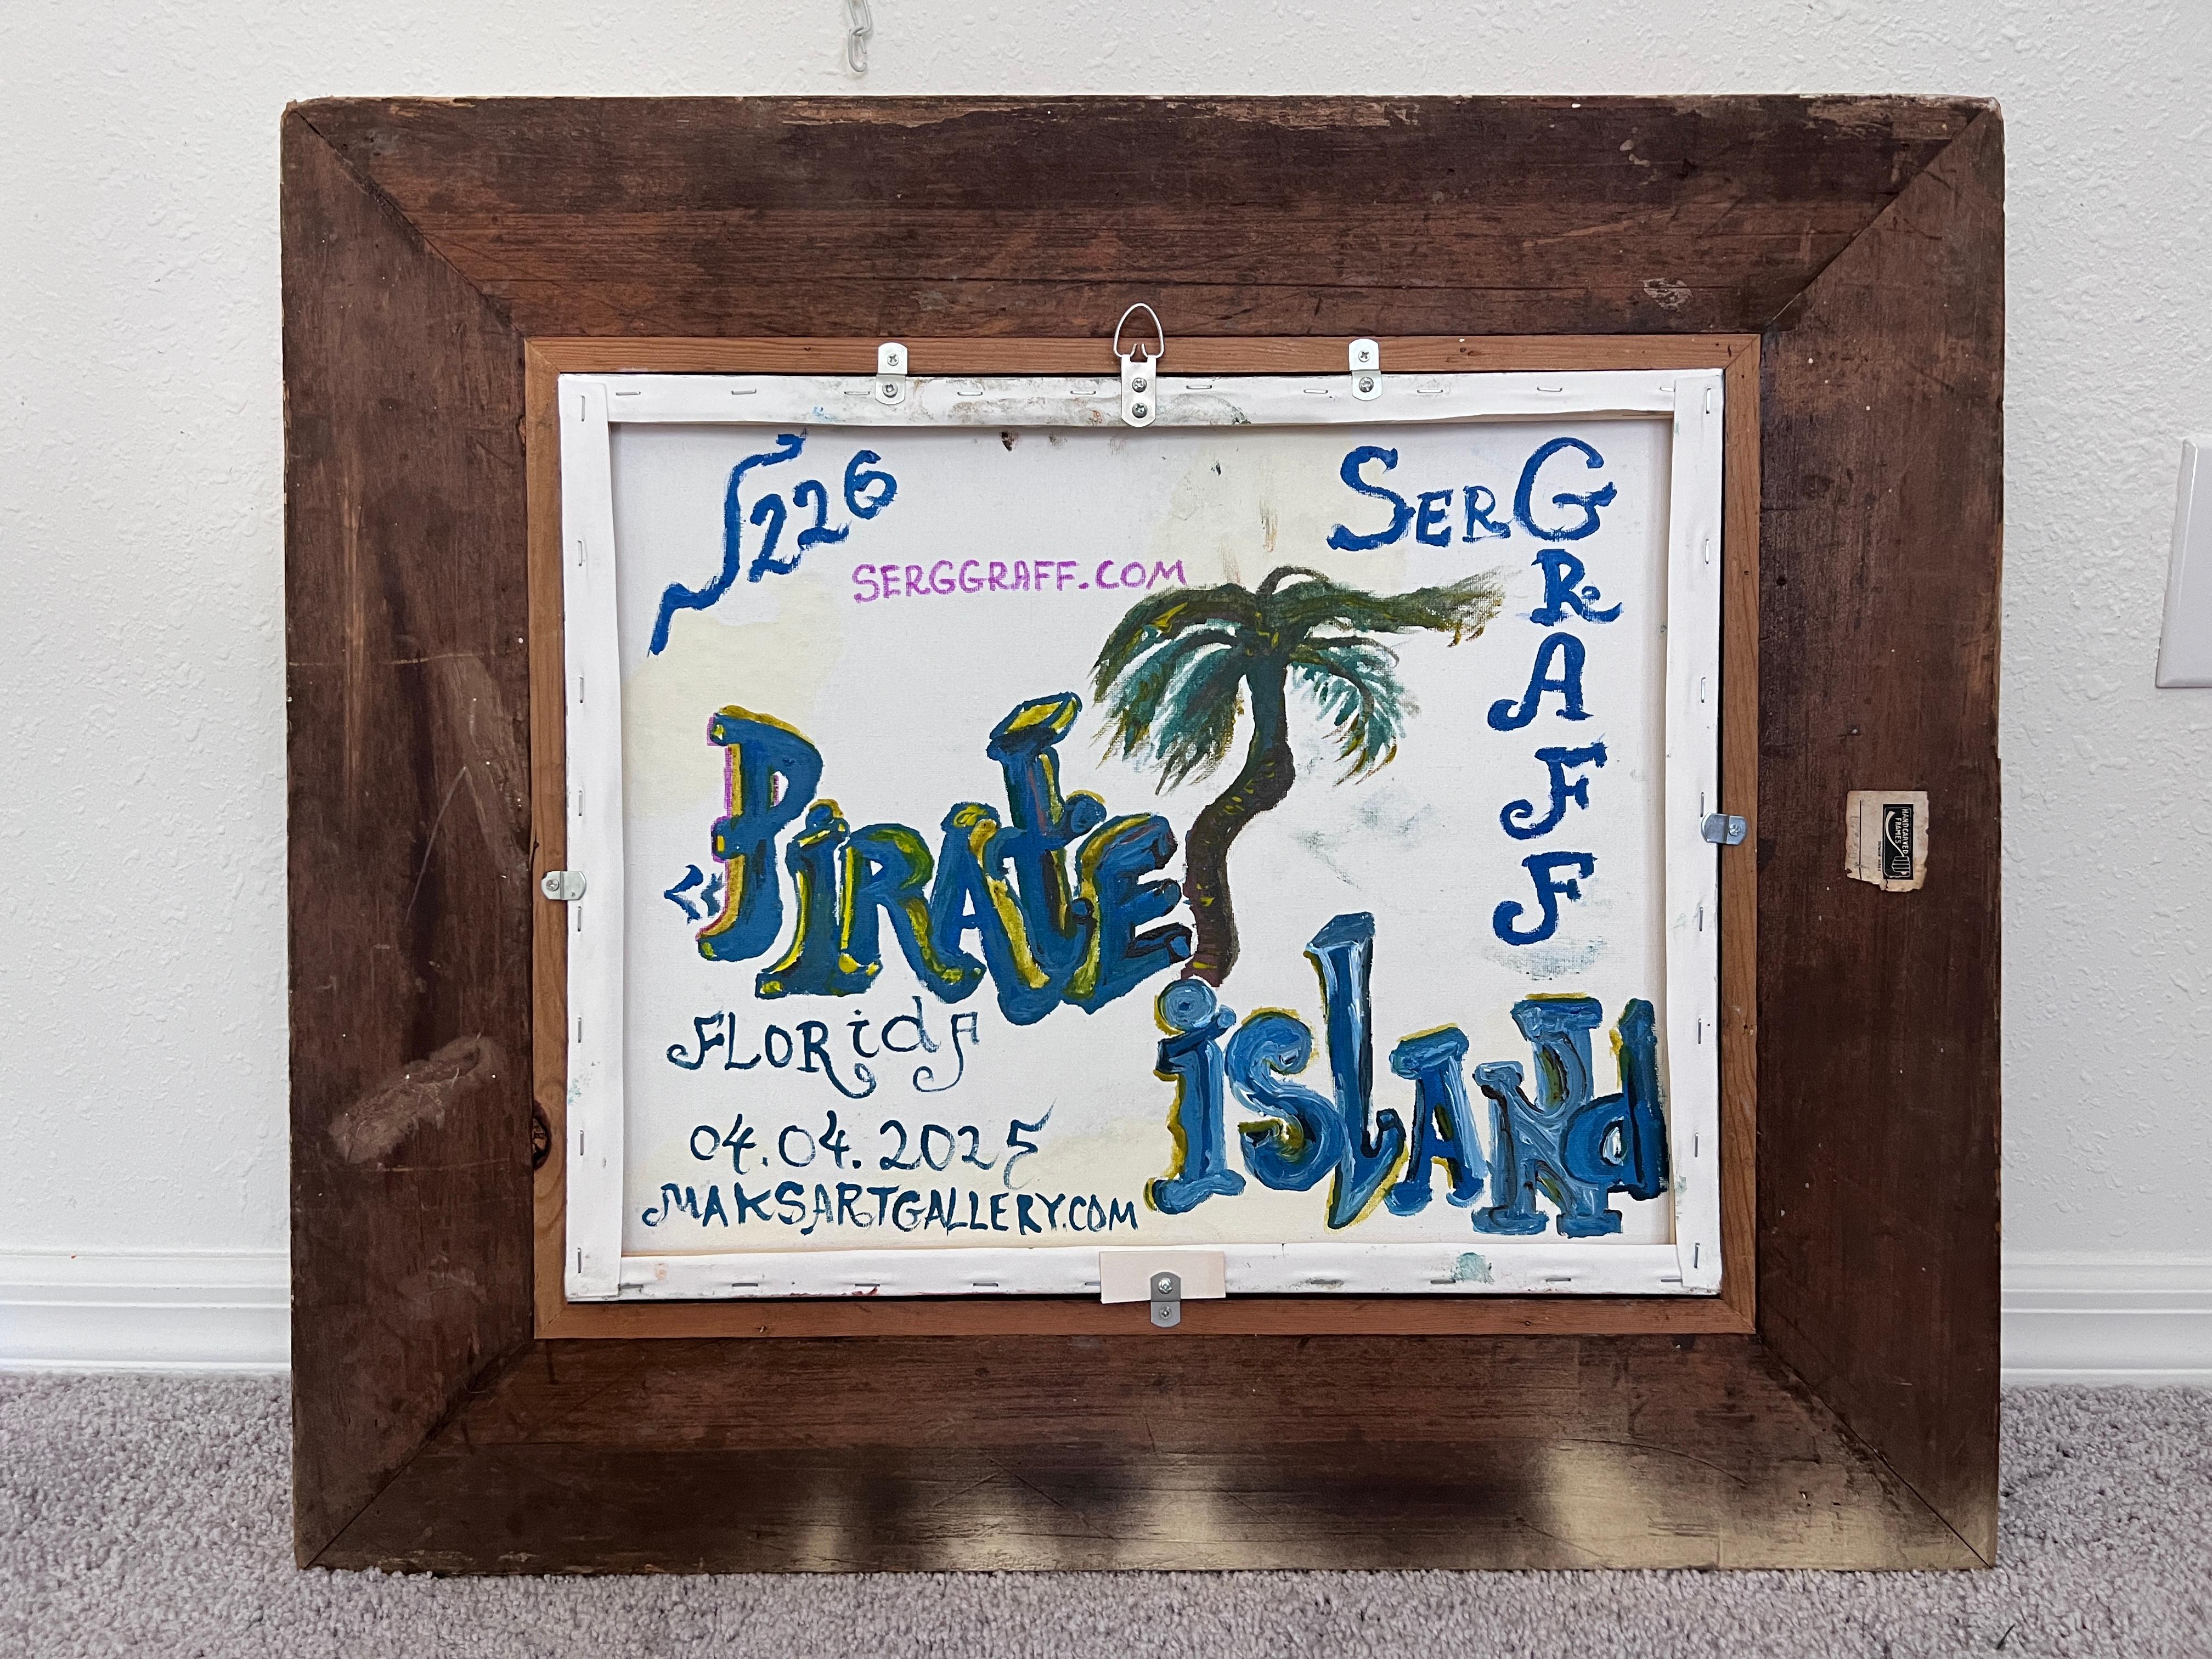 ∫226
SERGGRAFF.COM
SERG
GRAFF
«PIRATE
ISLAND
FLORidA
04.04.2025
MAKSARTGALLERY.COM
HAND CARVED
FRAMES